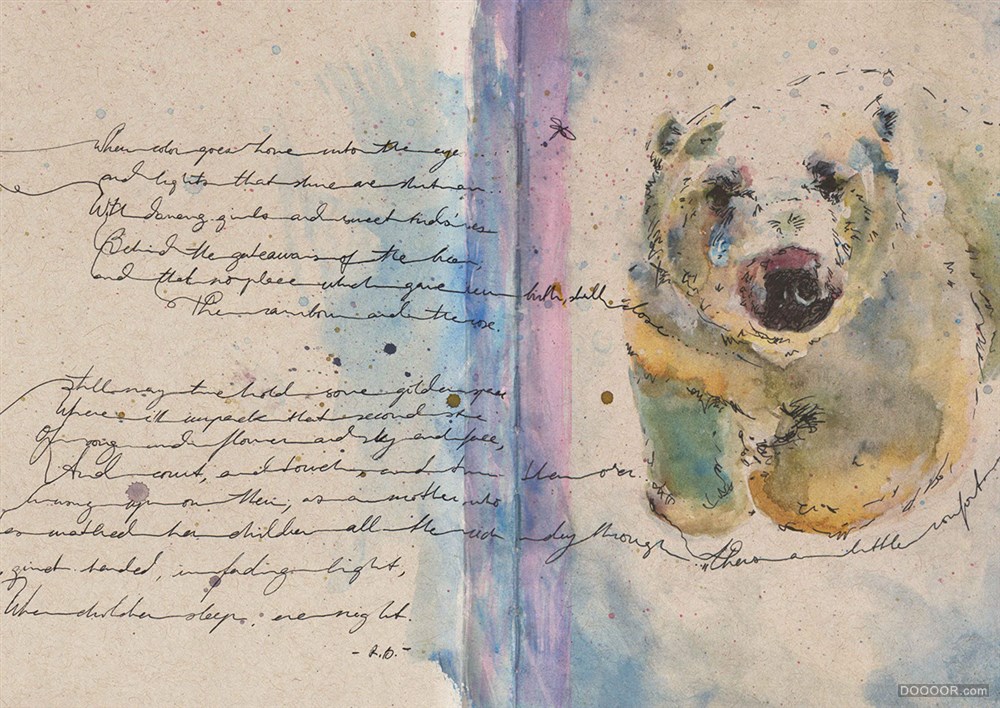 When color goes home into the eye
and lights that shine are shut an..
With dancing girls and sweet birds'
Behind the gateways of the
and that no place which gave birth, shall close
The rainbow and the rose.
Still may time hold some golden space
Where i'll unpack that
Of song and flower and sky and face,
And count, and touch and turn them o'er
upon them, as a mother who
watched her children all the rich day through
quiet handed, in fading light,
When children sleep, ere night.
- R.B. -
"There's a little comfort
DOOOOR.com